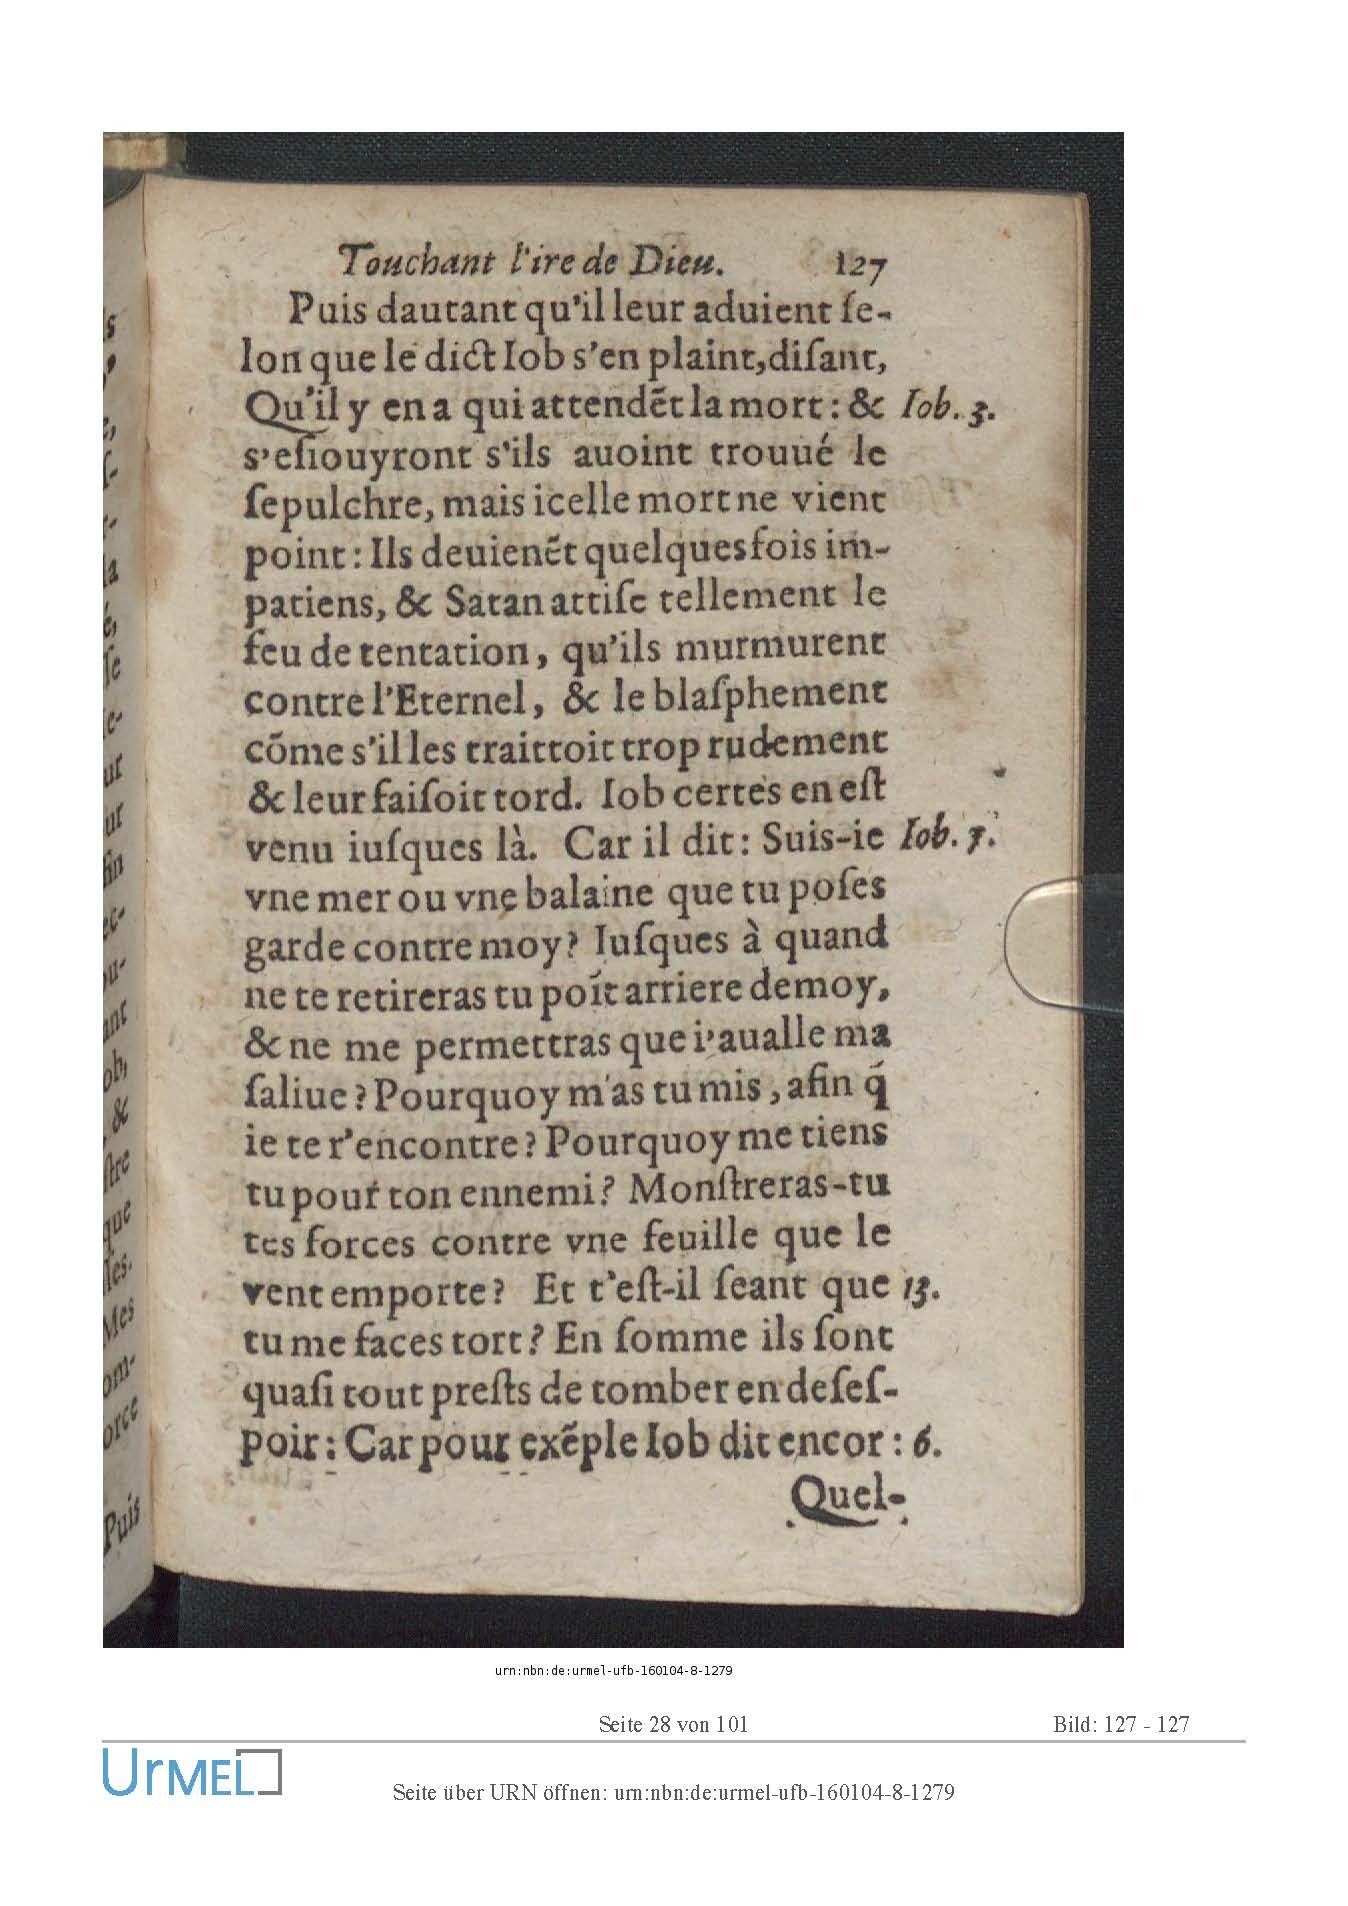 Touchant l'ire de Dieu. 127
Puis dautant qu'il leur aduient ſe-
lon que le dict Iob s'en plaint, diſant,
Qu'il y en a qui attendẽt la mort: & Iob. 3.
s'eſiouyront s'ils auoint trouué le
ſepulchre, mais icelle mort ne vient
point: Ils deuienẽt quelquesfois im-
patiens, & Satan attiſe tellement le
feu de tentation, qu'ils murmurent
contre l'Eternel, & le blaſphement
cõme s'il les traittoit trop rudement
& leur faiſoit tord. Iob certes en eſt
venu iuſques là. Car il dit: Suis-ie Iob. 7.
vne mer ou vne balaine que tu poſes
garde contre moy? Iuſques à quand
ne te retireras tu poĩt arriere de moy,
& ne me permettras que i'aualle ma
ſaliue? Pourquoy m'as tu mis, afin q̃
ie te r'encontre? Pourquoy me tiens
tu pour ton ennemi? Monſtreras-tu
tes forces contre vne feuille que le
vent emporte? Et t'eſt-il ſeant que 13.
tu me faces tort? En ſomme ils ſont
quaſi tout preſts de tomber en deſeſ-
poir: Car pour exẽple Iob dit encor: 6.
Quel-
ſe
ur
ur
fin
ec-
ou-
ant
ob,
, &
ſtre
que
les.
Mes
om-
orce
Puis
urn:nbn:de:urmel-ufb-160104-8-1279
Seite 28 von 101 Bild: 127 - 127
UrMEL
Seite über URN öffnen: urn:nbn:de:urmel-ufb-160104-8-1279